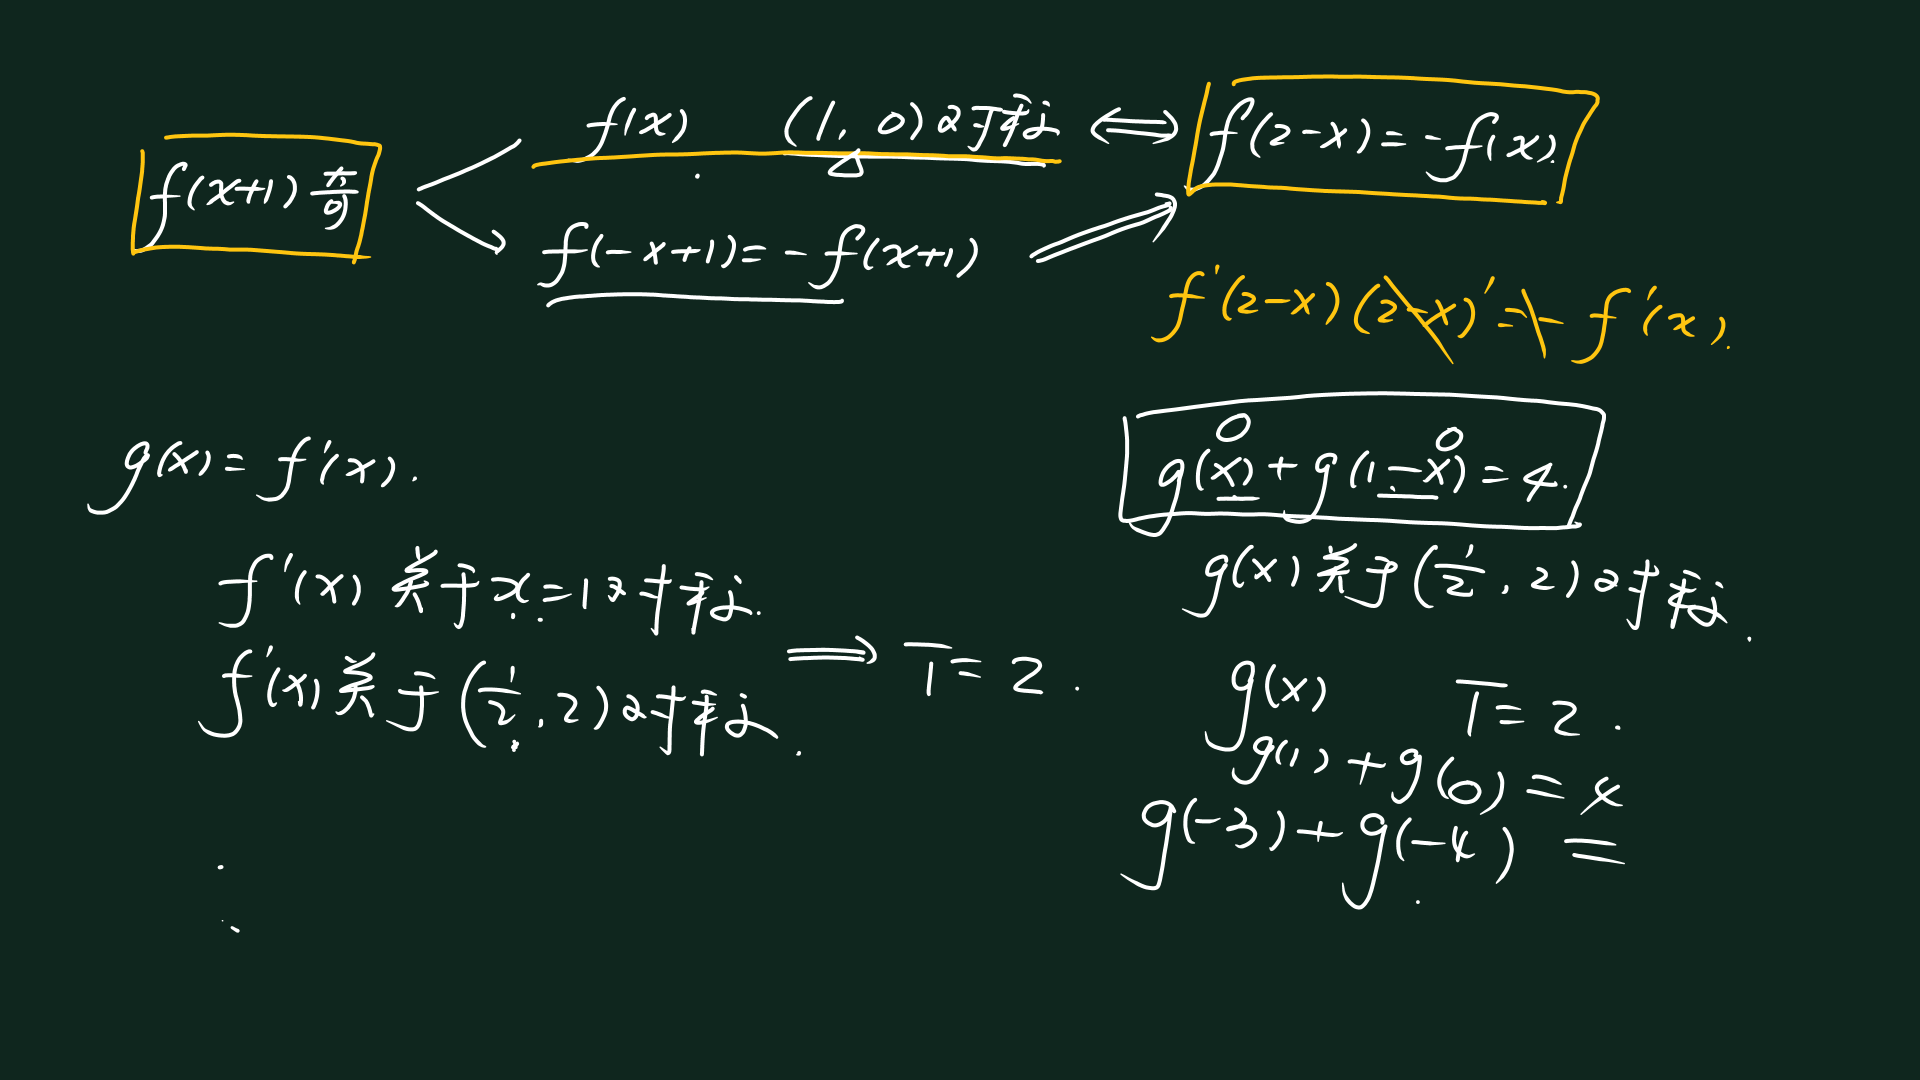 f(x+1)奇
f(x) (1, 0)对称 ⟺ f(2-x)=-f(x).
f(-x+1)=-f(x+1) ⟹
f'(2-x)(2-x)'=-f'(x).
g(x)=f'(x).
f'(x)关于x=1对称.
f'(x)关于(1/2,2)对称.
⟹ T=2.
0 0
g(x)+g(1-x)=4.
g(x)关于(1/2,2)对称.
g(x) T=2.
g(1)+g(0)=4
g(-3)+g(-4)=